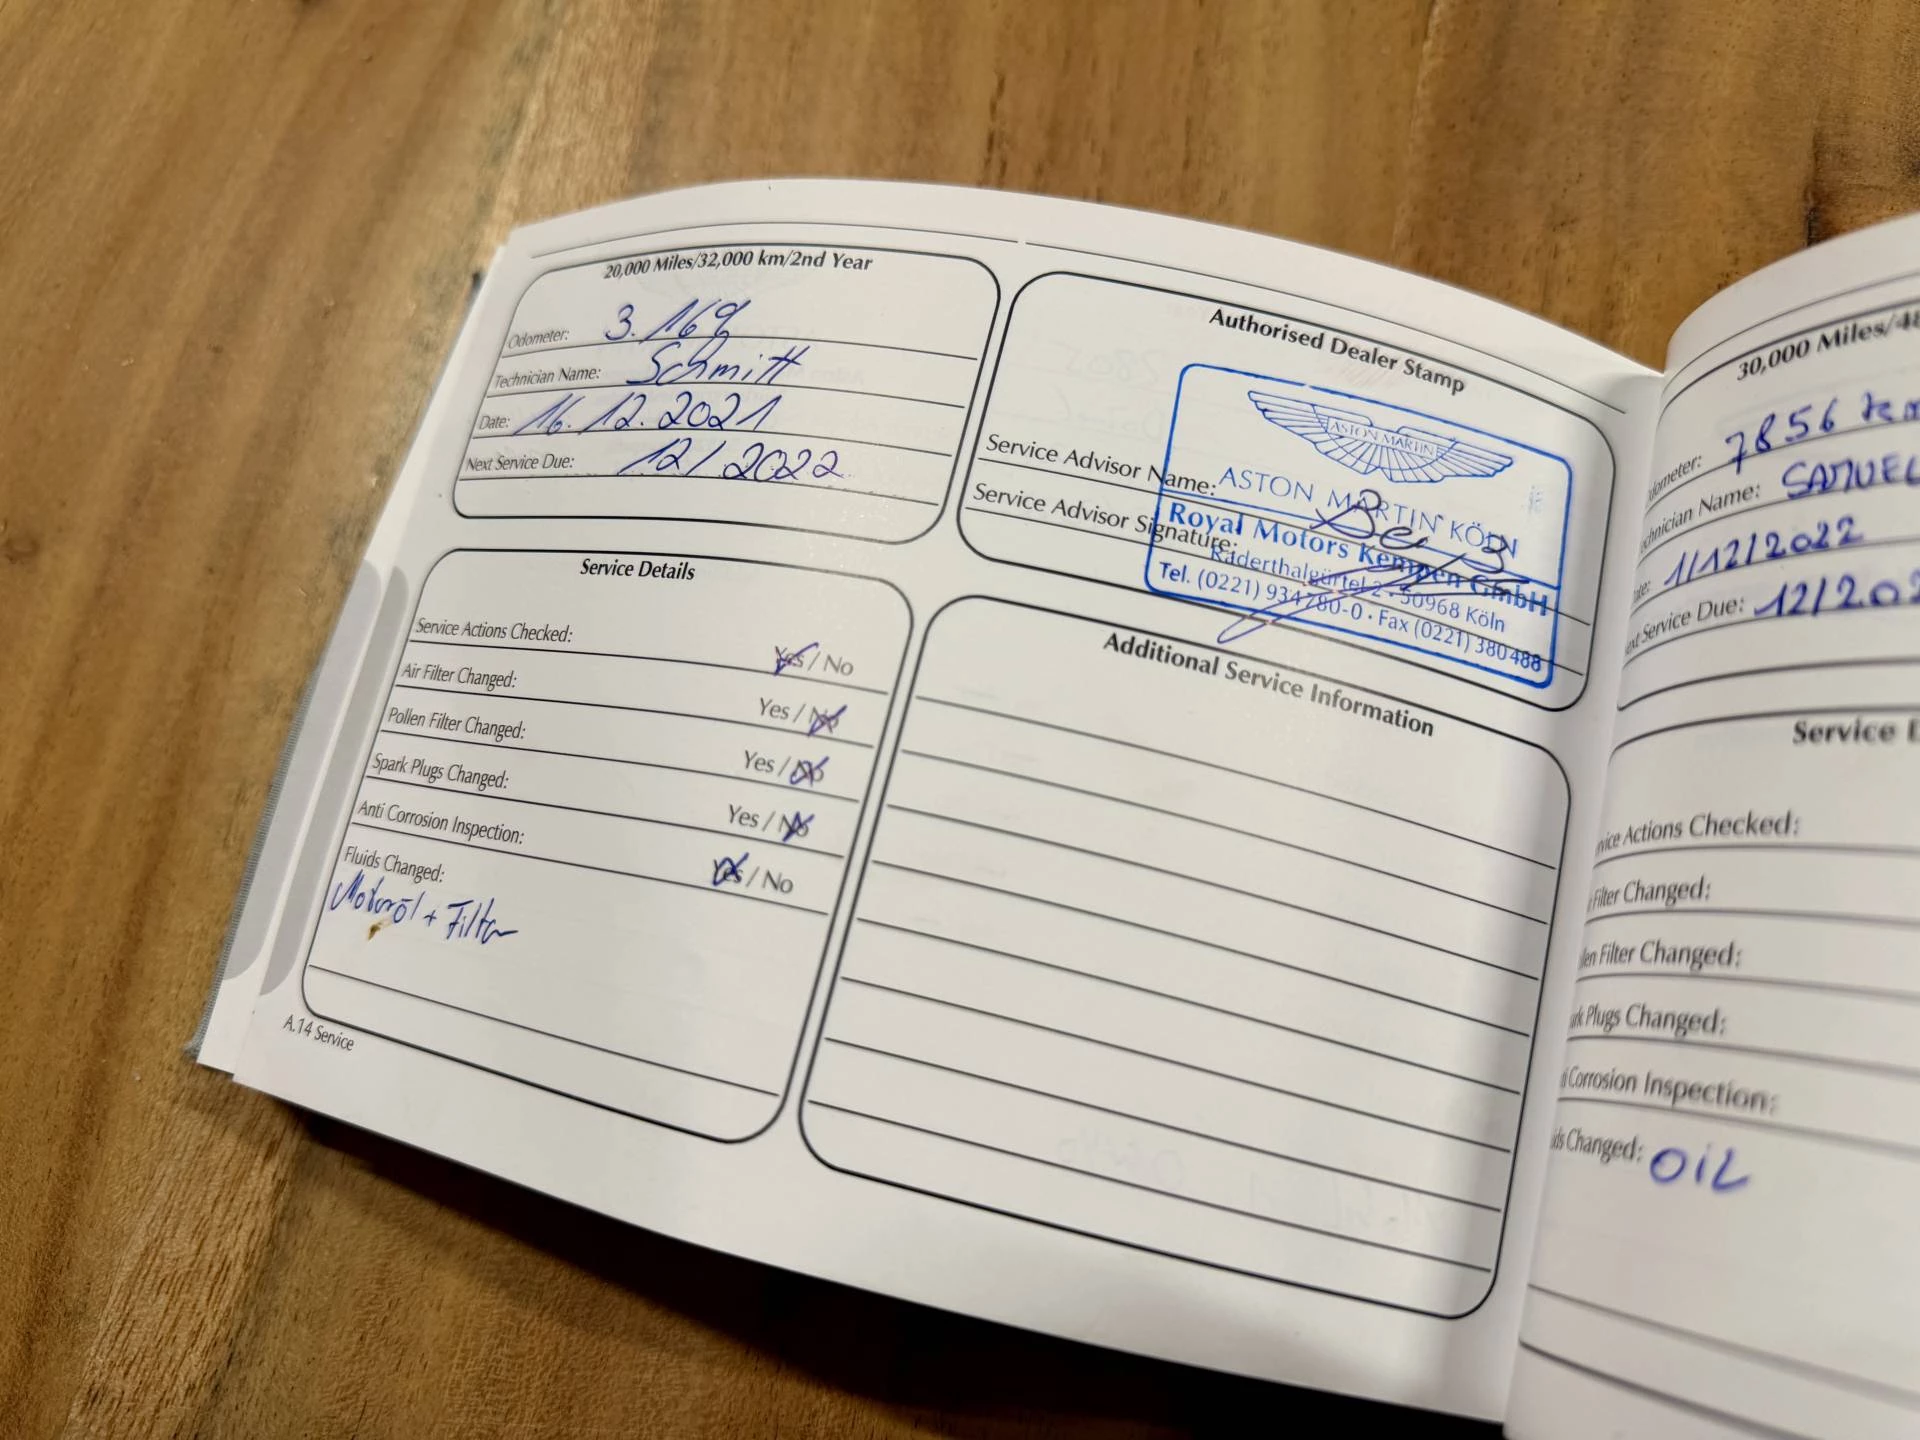 20,000 Miles/32,000 km/2nd Year
Odometer: 3.169
Technician Name: Schmitt
Date: 16.12.2021
Next Service Due: 12/2022
Authorised Dealer Stamp
ASTON MARTIN
Service Advisor Name:
ASTON MARTIN KÖLN
Service Advisor Signature:
Royal Motors Kempen GmbH
Raderthalgürtel 2 · 50968 Köln
Tel. (0221) 934780-0 · Fax (0221) 380488
Service Details
Service Actions Checked: Yes / No
Air Filter Changed: Yes / No
Pollen Filter Changed: Yes / No
Spark Plugs Changed: Yes / No
Anti Corrosion Inspection: Yes / No
Fluids Changed:
Motoröl + Filter
A.14 Service
Additional Service Information
30,000 Miles/48
ometer: 7856 km
chnician Name: SAMUEL
ate: 1/12/2022
ext Service Due: 12/202
Service D
rvice Actions Checked:
Filter Changed:
llen Filter Changed:
ark Plugs Changed:
ti Corrosion Inspection:
ids Changed: OIL